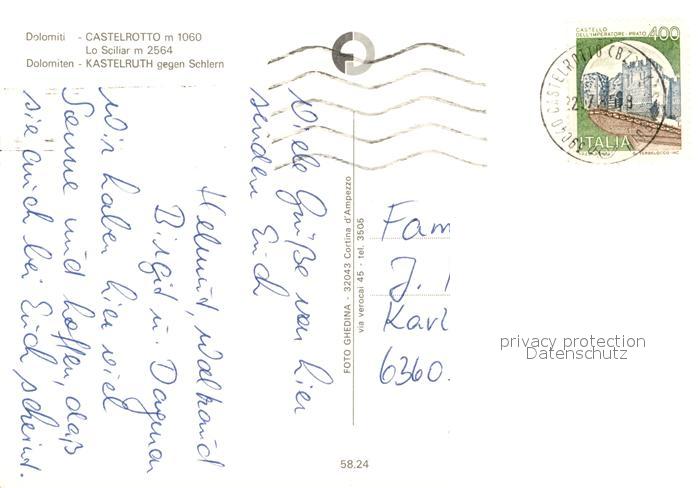 Dolomiti - CASTELROTTO m 1060
Lo Sciliar m 2564
Dolomiten - KASTELRUTH gegen Schlern
Viele Grüße von hier
senden Euch
Helmut, Waltraud
Birgit u. Dagmar
Wir haben hier viel
Sonne und hoffen, daß
sie auch bei Euch scheint.
FOTO GHEDINA - 32043 Cortina d'Ampezzo
via verocai 45 - tel. 3505
58.24
CASTELLO
DELL'IMPERATORE - PRATO
400
ITALIA
39040 CASTELROTTO (BZ)
Fam
J.
Karl
6360.
privacy protection
Datenschutz